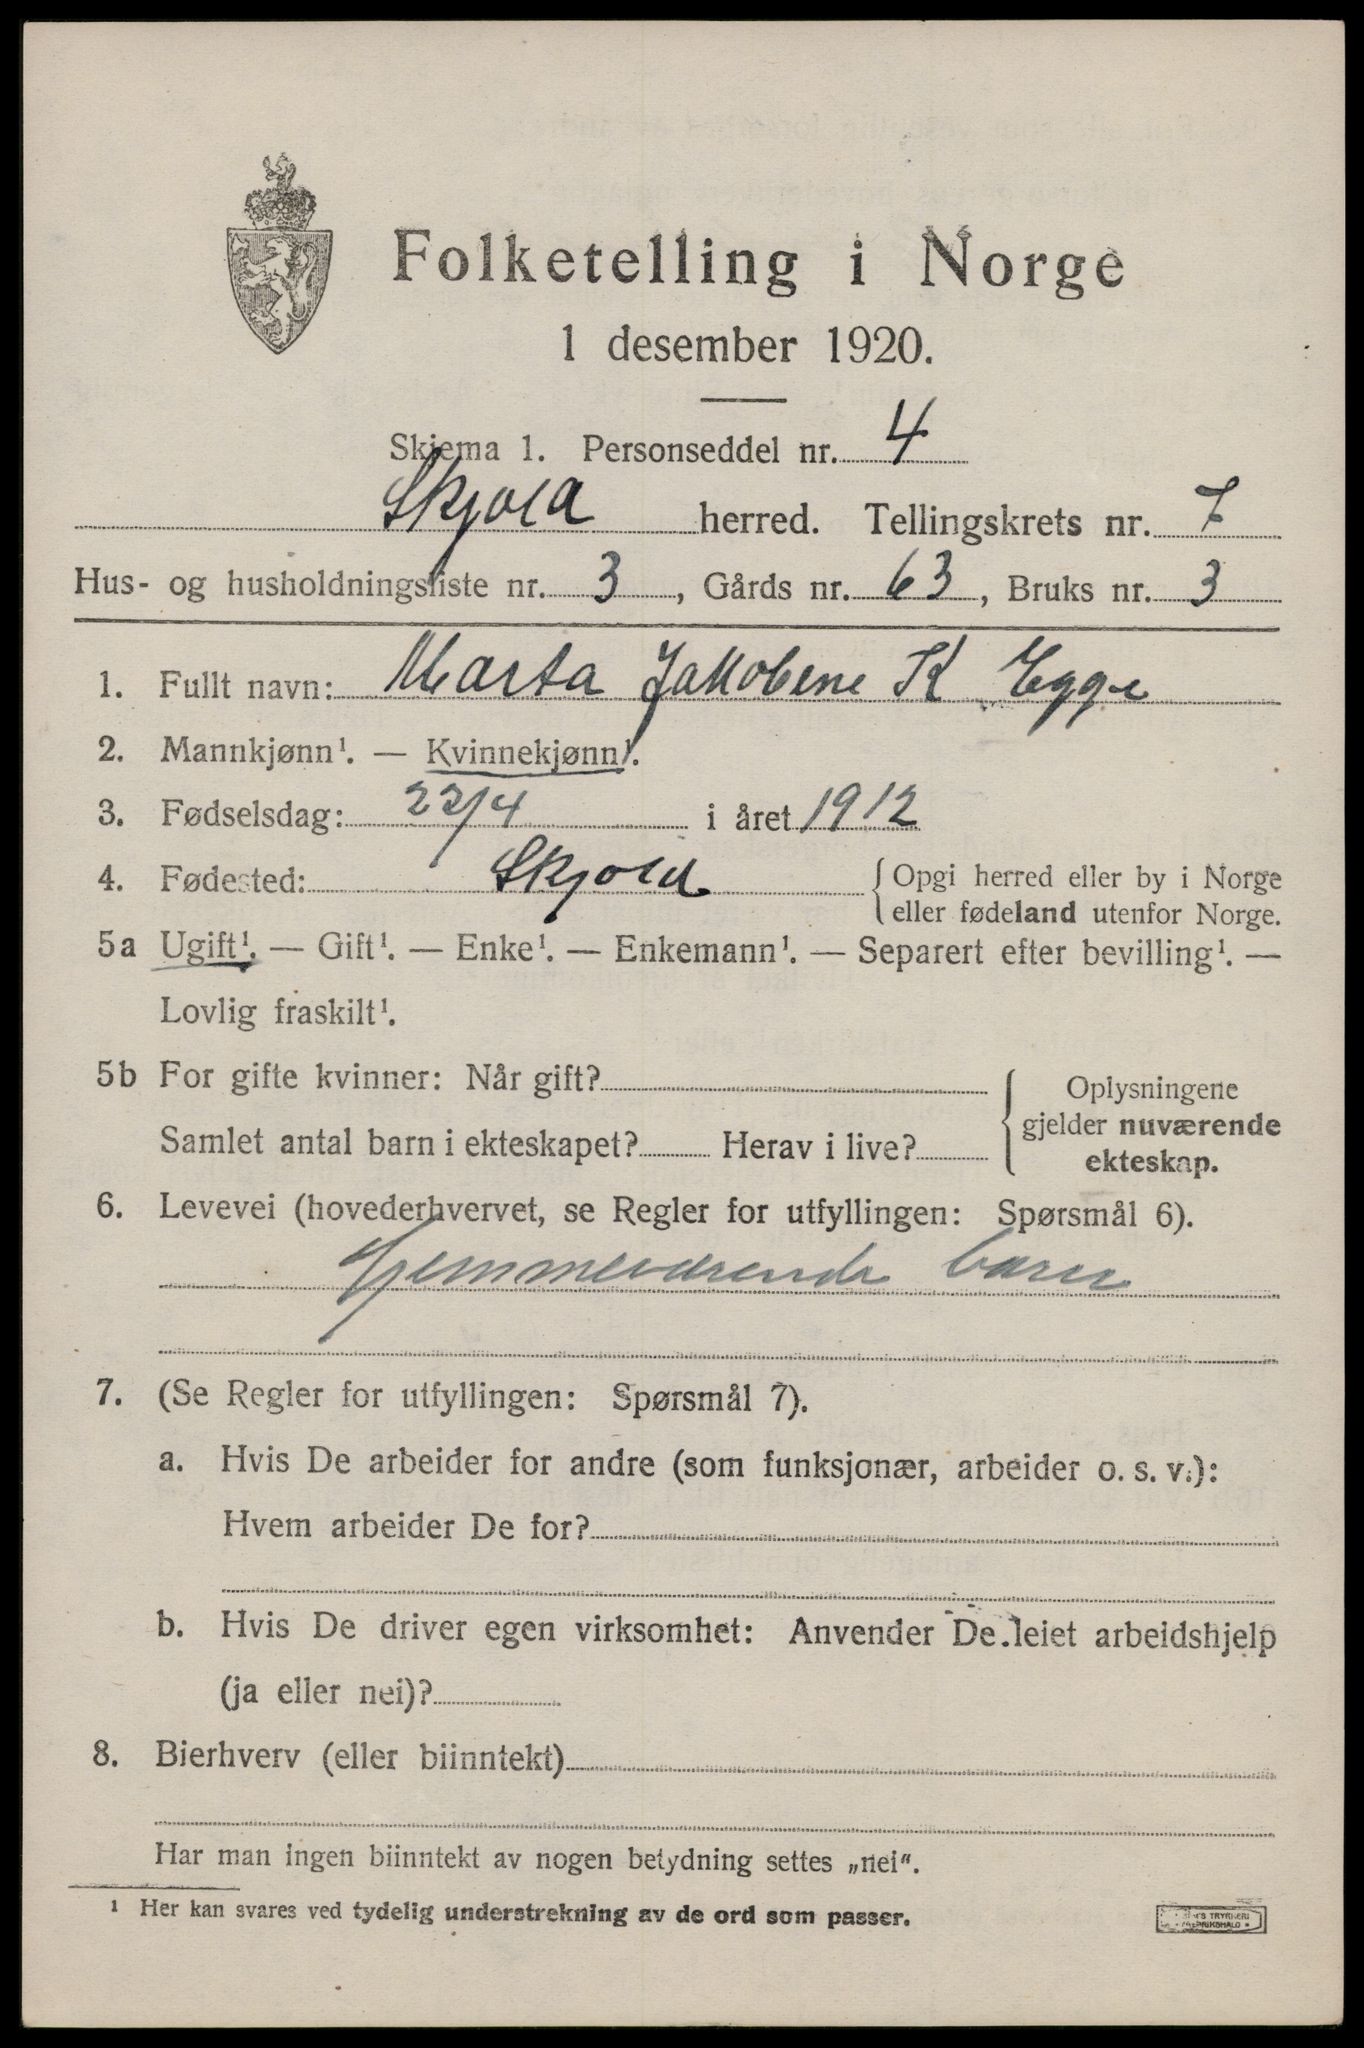 Folketelling i Norge
1 desember 1920.
Skjema 1. Personseddel nr. 4
Skjold herred. Tellingskrets nr. 7
Hus- og husholdningsliste nr. 3, Gårds nr. 63, Bruks nr. 3
1. Fullt navn: Marta Jakobene K Egge
2. Mannkjønn¹. — Kvinnekjønn¹.
3. Fødselsdag: 22/4 i året 1912
4. Fødested: Skjold {Opgi herred eller by i Norge
eller fødeland utenfor Norge.
5a Ugift¹. — Gift¹. — Enke¹. — Enkemann¹. — Separert efter bevilling¹. —
Lovlig fraskilt¹.
5b For gifte kvinner: Når gift? Oplysningene
gjelder nuværende
Samlet antal barn i ekteskapet? Herav i live?
ekteskap.
6. Levevei (hovederhvervet, se Regler for utfyllingen: Spørsmål 6).
Hjemmeværende barn
7. (Se Regler for utfyllingen: Spørsmål 7).
a. Hvis De arbeider for andre (som funksjonær, arbeider o. s. v.):
Hvem arbeider De for?
b. Hvis De driver egen virksomhet: Anvender De leiet arbeidshjelp
(ja eller nei)?
8. Bierhverv (eller biinntekt)
Har man ingen biinntekt av nogen betydning settes „nei".
¹ Her kan svares ved tydelig understrekning av de ord som passer.
TRYKKERI